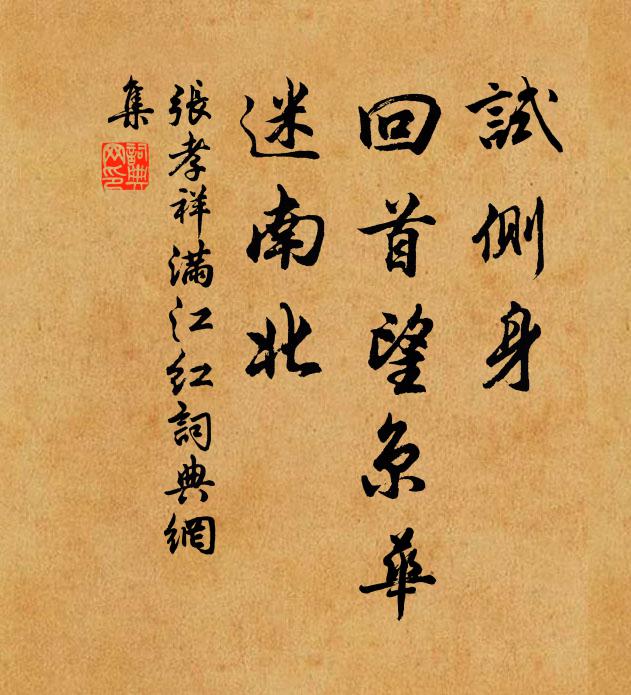 試側身
回首望京華
迷南北
張孝祥滿江红詞典網
集
詞典网印